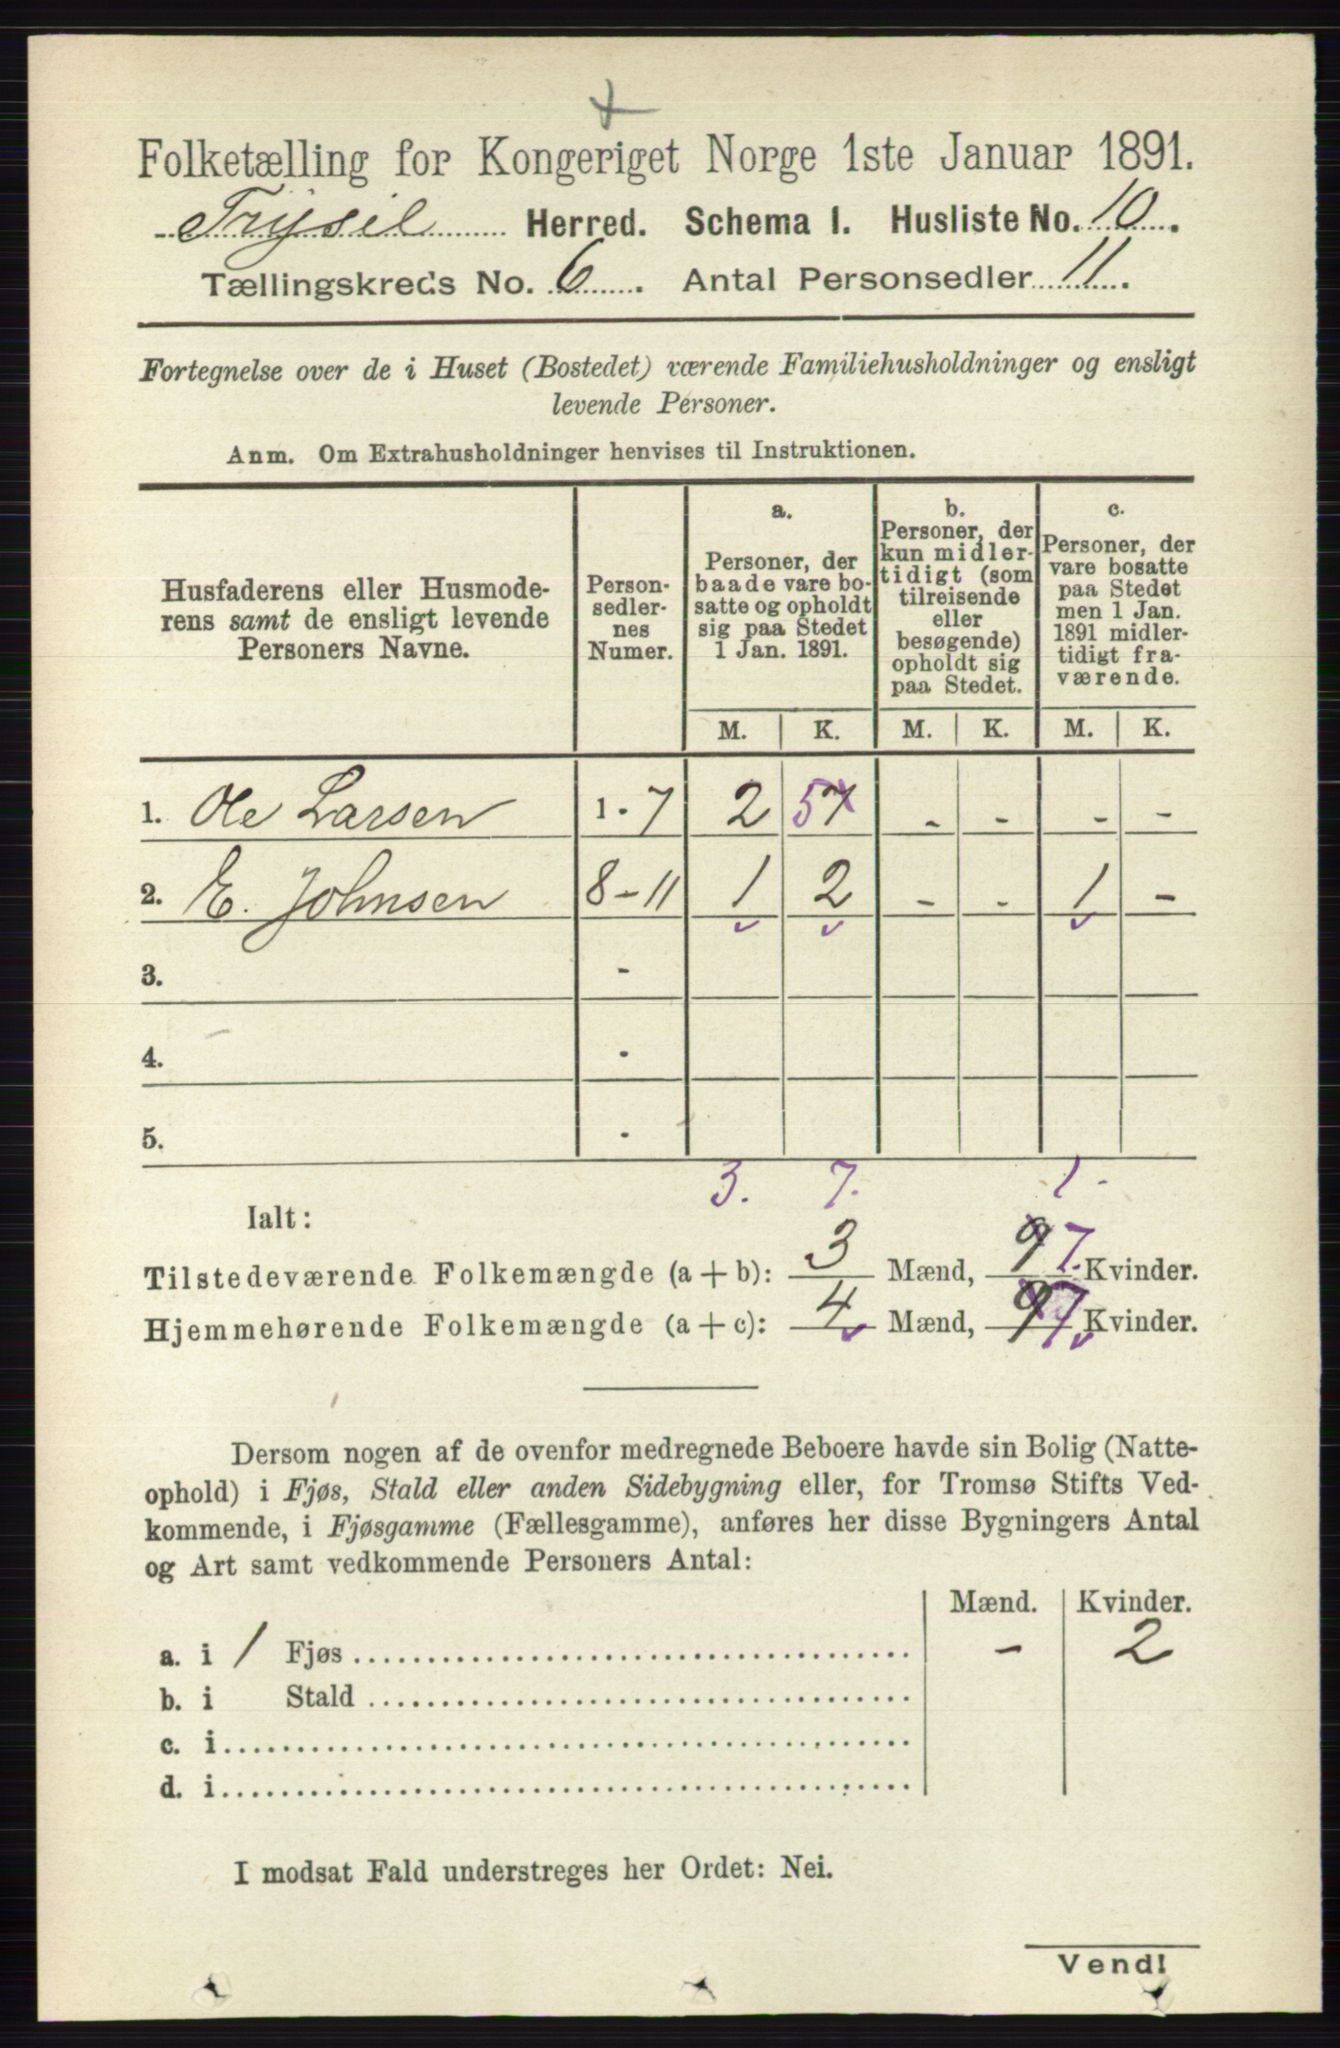 Folketælling for Kongeriget Norge 1ste Januar 1891.
Trysil Herred. Schema I. Husliste No. 10.
Tællingskreds No. 6. Antal Personsedler 11.
Fortegnelse over de i Huset (Bostedet) værende Familiehusholdninger og ensligt
levende Personer.
Anm. Om Extrahusholdninger henvises til Instruktionen.
Husfaderens eller Husmode-
rens samt de ensligt levende
Personers Navne.
Person-
sedler-
nes
Numer.
a.
Personer, der
baade vare bo-
satte og opholdt
sig paa Stedet
1 Jan. 1891.
b.
Personer, der
kun midler-
tidigt (som
tilreisende
eller
besøgende)
opholdt sig
paa Stedet.
c.
Personer, der
vare bosatte
paa Stedet
men 1 Jan.
1891 midler-
tidigt fra-
værende.
M. K. M. K. M. K.
1. Ole Larsen 1 - 7 2 5 7 - - - -
2. E. Johnsen 8 - 11 1 2 - - 1 -
3. -
4. -
5. -
3. 7. 1.
Ialt:
Tilstedeværende Folkemængde (a + b): 3 Mænd, 9 7. Kvinder.
Hjemmehørende Folkemængde (a + c): 4 Mænd, 9 7 Kvinder.
Dersom nogen af de ovenfor medregnede Beboere havde sin Bolig (Natte-
ophold) i Fjøs, Stald eller anden Sidebygning eller, for Tromsø Stifts Ved-
kommende, i Fjøsgamme (Fællesgamme), anføres her disse Bygningers Antal
og Art samt vedkommende Personers Antal:
Mænd. Kvinder.
a. i 1 Fjøs - 2
b. i Stald
c. i
d. i
I modsat Fald understreges her Ordet: Nei.
Vend!